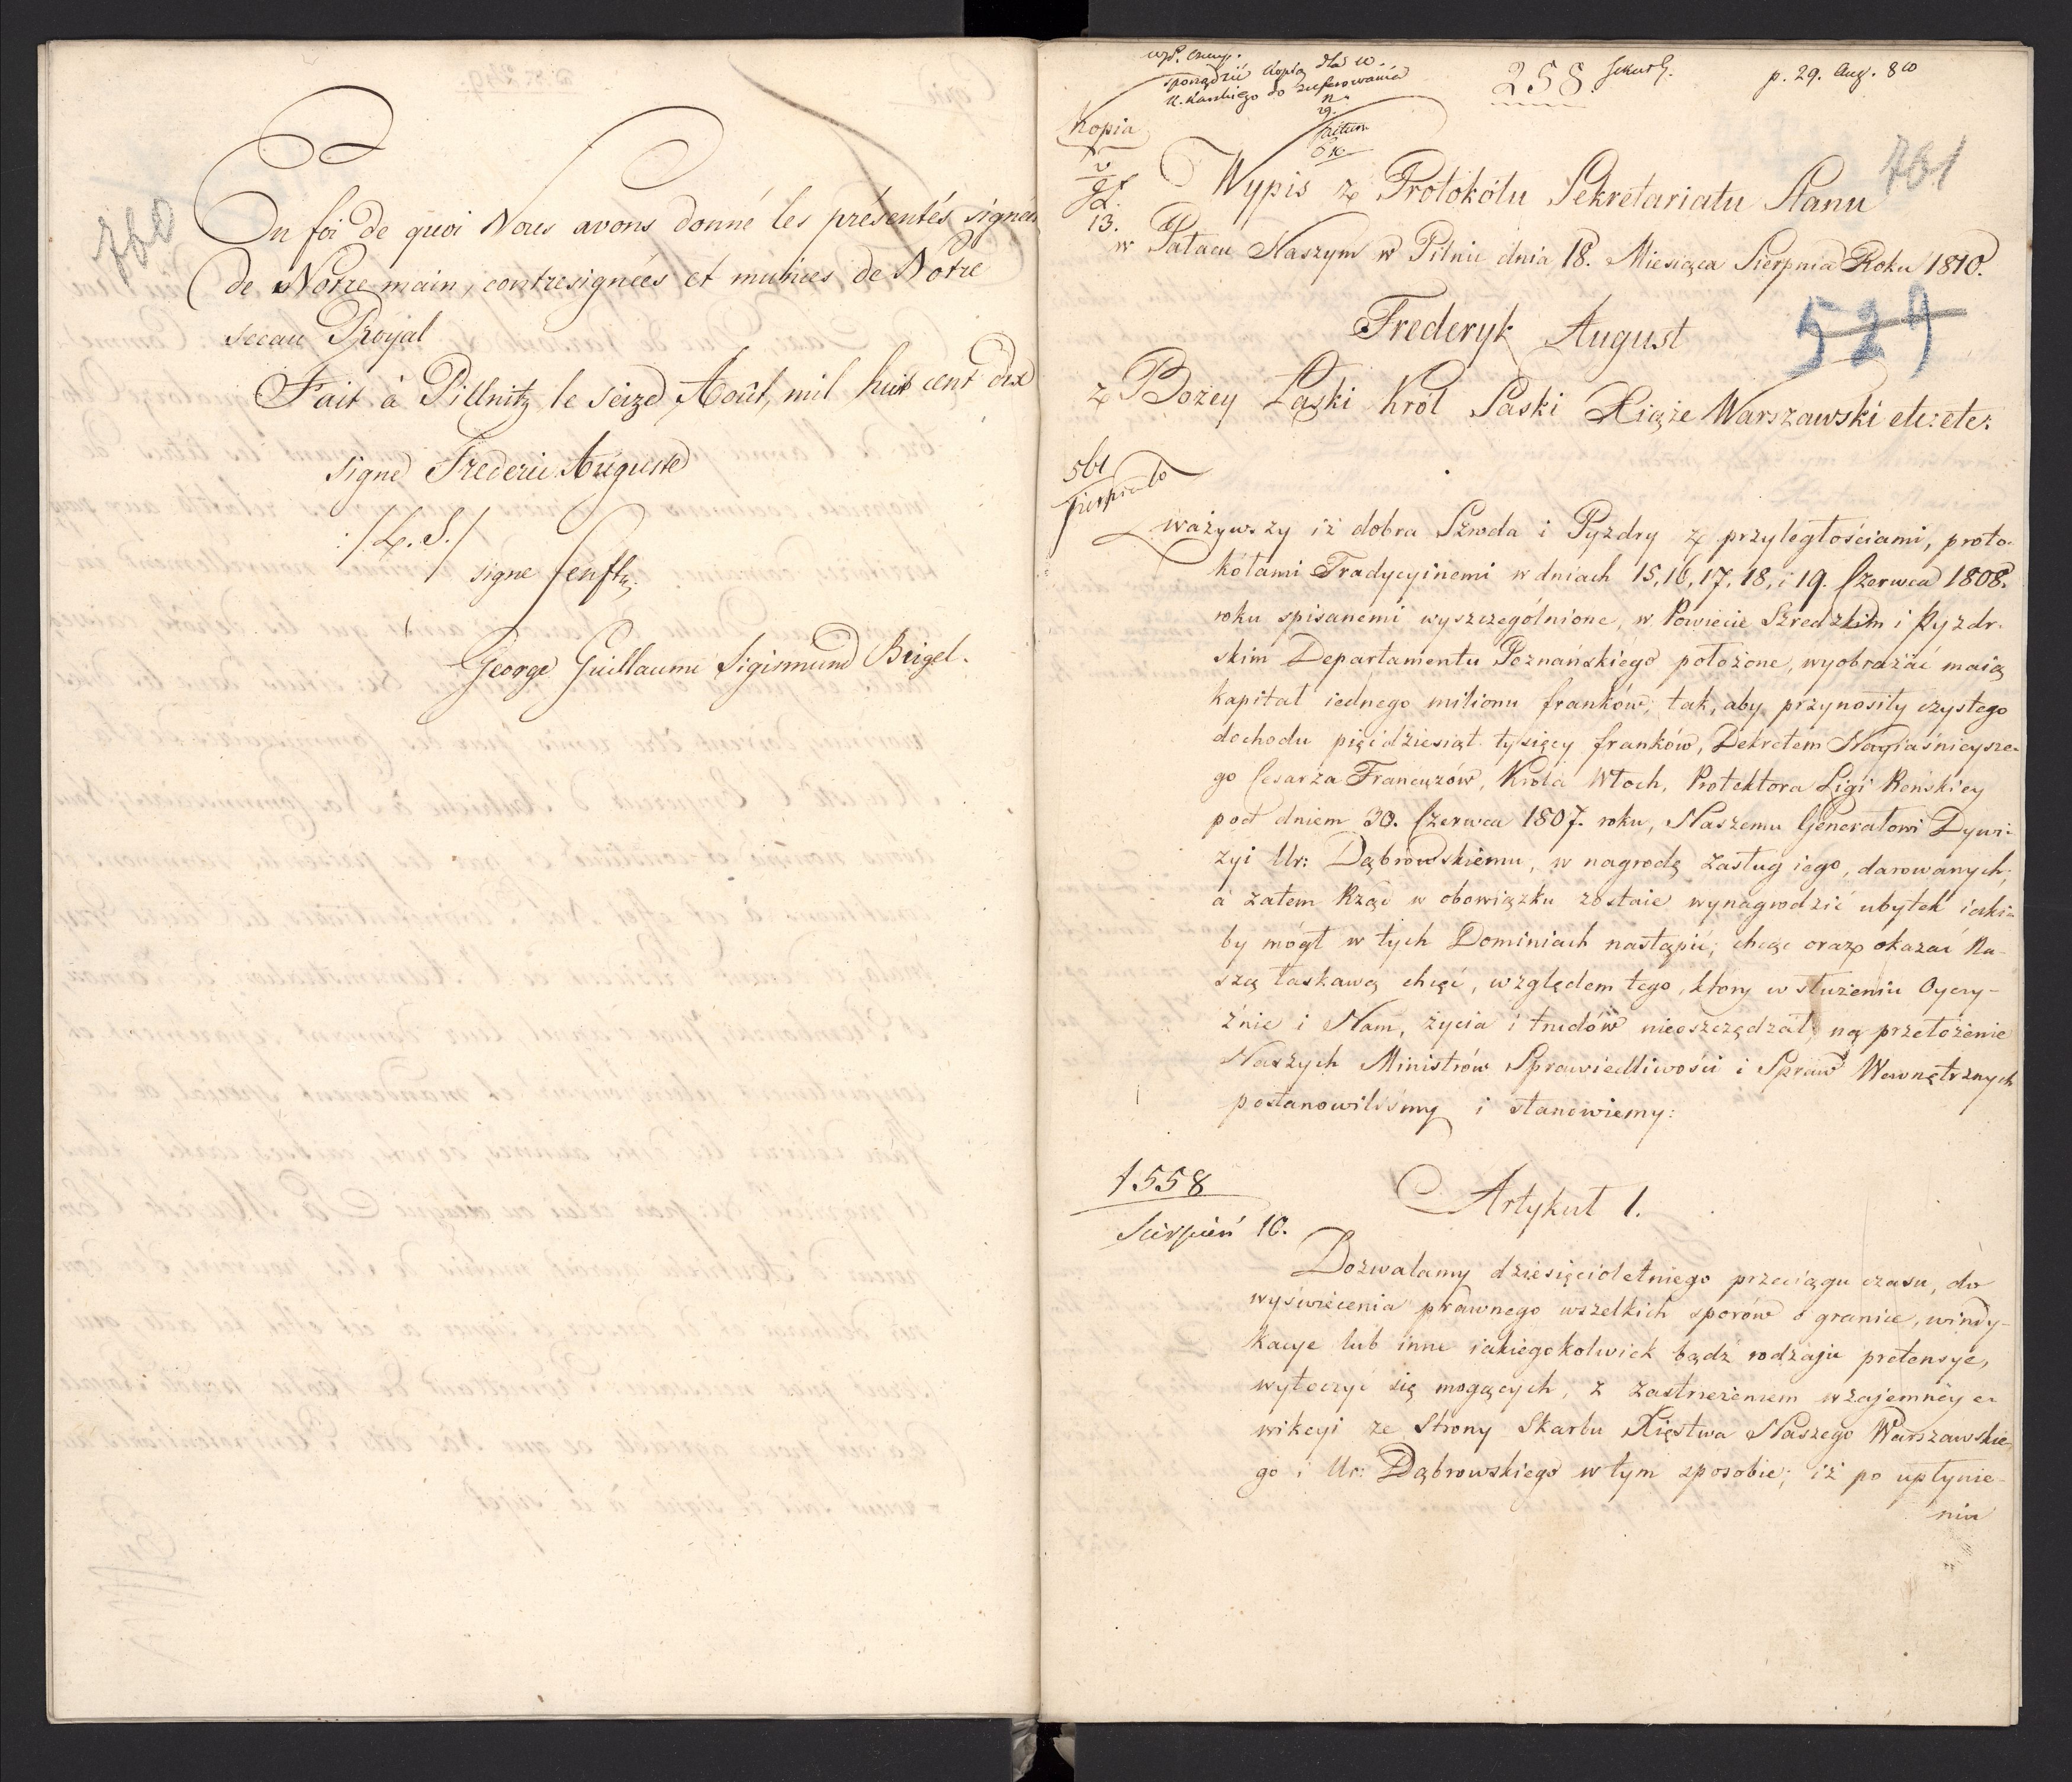 760
En foi de quoi Nous avons donné les présentés signées
de Notre main, contresignées et munies de Nôtre
sceau Royal
Fait à Pillnitz, le seize Août, mil huit cent dix
signé Frederic Auguste
:/L. S./
signe Senfft
George Guillaume Sigismund Beigel.
sporządzić kopią dla
do
Kopia
13.
258.
p. 29. Aug. 810
761
Wypis z Protokółu Sekretariatu Stanu
w Pałacu Naszym w Pilnic dnia 18. Miesiąca Sierpnia Roku 1810.
529
Frederyk August
z Bożey Łaski Król Saski Xiąże Warszawski etc: etc:
561
Sierpnia 10
Zważywszy iż dobra Szroda i Pyzdry z przyległościami, proto-
kółami Tradycyinemi w dniach 15, 16, 17, 18, i 19. Czerwca 1808.
roku spisanemi wyszczególnione, w Powiecie Szredzkim i Pyzdr-
skim Departamentu Poznańskiego położone, wyobrażać maią
kapitał iednego milionu franków; tak, aby przynosiły czystego
dochodu pięćdziesiąt tysięcy franków, Dekretem Nayiaśnieysze-
go Cesarza Francuzów, Króla Włoch, Protektora Ligi Reńskiey
pod dniem 30. Czerwca 1807. roku, Naszemu Generałowi Dywi-
zyi Ur: Dąbrowskiemu, w nagrodę zasług iego, darowanych;
a zatem Rząd w obowiązku zostaie wynagrodzić ubytek iaki-
by mógł w tych Dominiach nastąpić; chcąc oraz okazać Na-
szą łaskawą chęć, względem tego, który w służeniu Oyczy-
źnie i Nam, życia i trudów nieoszczędzał; na przełożenie
Naszych Ministrów Sprawiedliwości i Spraw Wewnętrznych
postanowiliśmy i stanowiemy:
1558
Sierpień 10.
Artykuł 1.
Dozwalamy dziesięcioletniego przeciągu czasu, do
wyświecenia prawnego wszelkich sporów o granice, windy-
kacye lub inne iakiegokolwiek bądź rodzaju pretensye,
wytoczyć się mogących, z zastrzeżeniem wzajemney e-
wikcyi ze Strony Skarbu Xięstwa Naszego Warszawskie-
go i Ur: Dąbrowskiego w tym sposobie; iż po upłynie-
niu